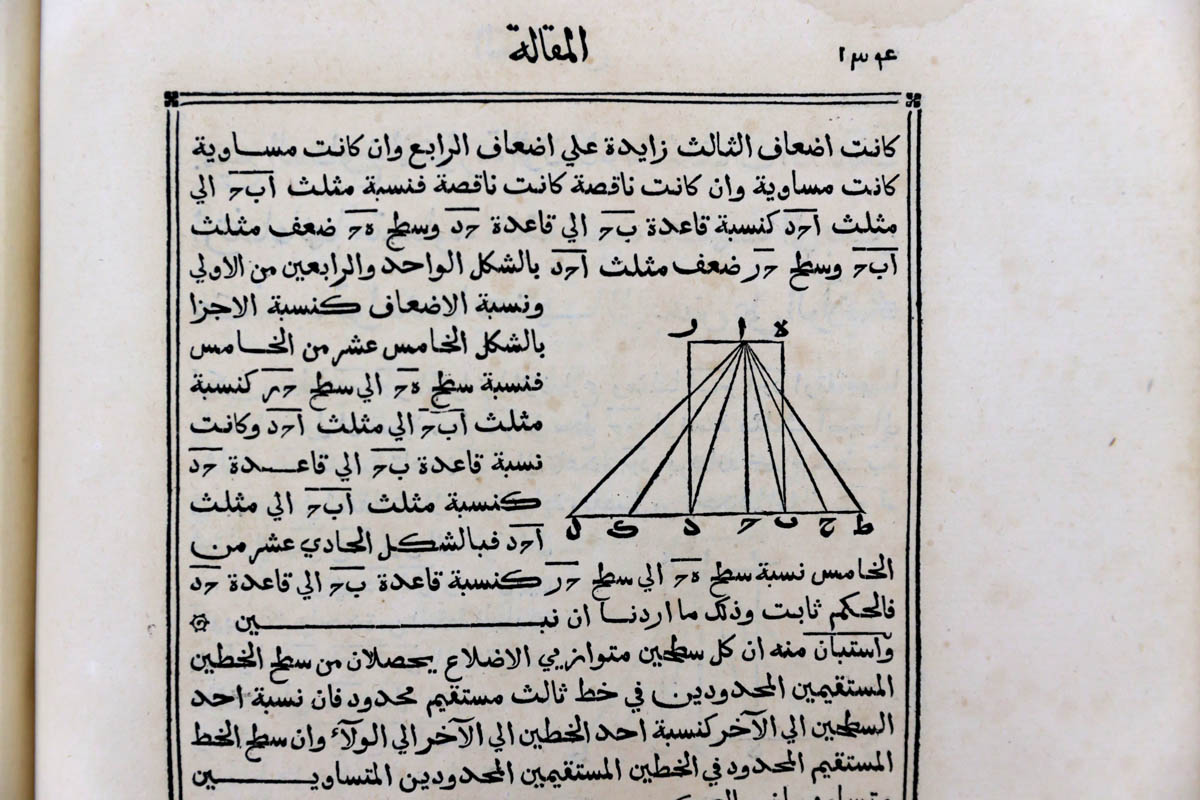 المقالة
١٣٤
كانت اضعاف الثالث زايدة علي اضعاف الرابع وان كانت مساوية
كانت مساوية وان كانت ناقصة كانت ناقصة فنسبة مثلث ابح الي
مثلث احد كنسبة قاعدة بح الي قاعدة حد وسطح هح ضعف مثلث
ابح وسطح حر ضعف مثلث احد بالشكل الواحد والرابعين من الاولي
ونسبة الاضعاف كنسبة الاجزا
بالشكل الخامس عشر من الخامس
فنسبة سطح هح الي سطح حر كنسبة
مثلث ابح الي مثلث احد وكانت
نسبة قاعدة بح الي قاعدة حد
كنسبة مثلث ابح الي مثلث
احد فبالشكل الحادي عشر من
ه ا ر
ط ج ب ح د ك ل
الخامس نسبة سطح هح الي سطح حر كنسبة قاعدة بح الي قاعدة حد
فالحكم ثابت وذلك ما اردنا ان نبين
واستبان منه ان كل سطحين متوازيي الاضلاع يحصلان من سطح الخطين
المستقيمين المحدودين في خط ثالث مستقيم محدود فان نسبة احد
السطحين الي الآخر كنسبة احد الخطين الي الآخر الي الولآء وان سطح الخط
المستقيم المحدود في الخطين المستقيمين المحدودين المتساويين